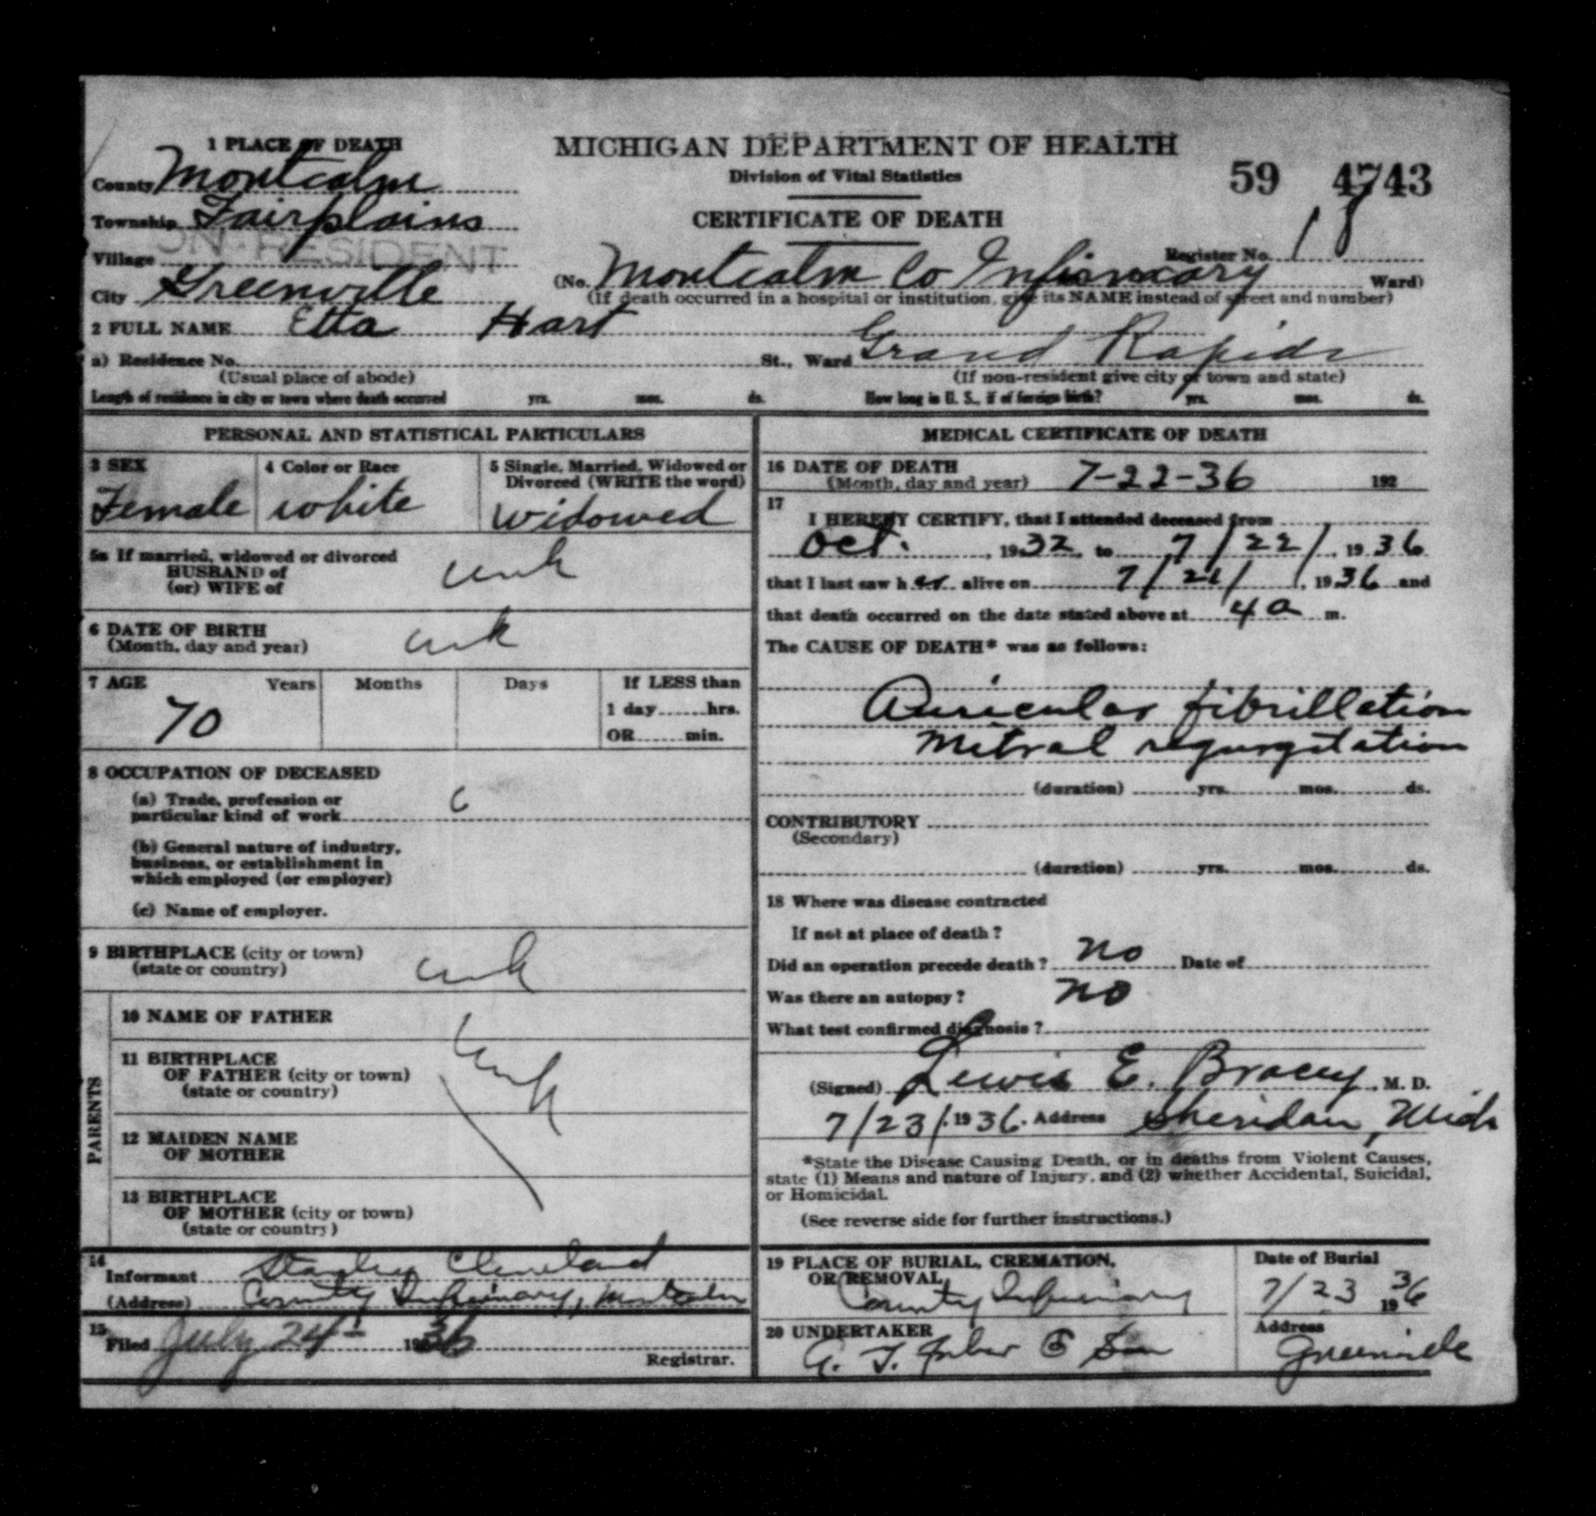 1 PLACE OF DEATH
MICHIGAN DEPARTMENT OF HEALTH
Division of Vital Statistics
59 4743
County Montcalm
Township Fairplains
CERTIFICATE OF DEATH
NON-RESIDENT
Village
Register No. 18
City Greenville
(No. Montcalm Co Infirmary Ward)
(If death occurred in a hospital or institution, give its NAME instead of street and number)
2 FULL NAME Etta Hart
a) Residence No. St., Ward Grand Rapids
(Usual place of abode) (If non-resident give city or town and state)
Length of residence in city or town where death occurred yrs. mos. ds. How long in U. S., if of foreign birth? yrs. mos. ds.
PERSONAL AND STATISTICAL PARTICULARS
3 SEX
Female
4 Color or Race
white
5 Single, Married, Widowed or
Divorced (WRITE the word)
widowed
5a If married, widowed or divorced
HUSBAND of
(or) WIFE of
unk
6 DATE OF BIRTH
(Month, day and year)
unk
7 AGE Years Months Days If LESS than
70
1 day hrs.
OR min.
8 OCCUPATION OF DECEASED
(a) Trade, profession or
particular kind of work
(b) General nature of industry,
business, or establishment in
which employed (or employer)
(c) Name of employer.
9 BIRTHPLACE (city or town)
(state or country)
unk
PARENTS
10 NAME OF FATHER
unk
11 BIRTHPLACE
OF FATHER (city or town)
(state or country)
12 MAIDEN NAME
OF MOTHER
13 BIRTHPLACE
OF MOTHER (city or town)
(state or country)
14
Informant Stanley Cleveland
(Address) County Infirmary,
15
Filed July 24 1936
Registrar.
MEDICAL CERTIFICATE OF DEATH
16 DATE OF DEATH
(Month, day and year) 7-22-36 192
17
I HEREBY CERTIFY, that I attended deceased from
Oct. 1932 to 7/22/ 1936
that I last saw her alive on 7/21/, 1936 and
that death occurred on the date stated above at 4 a m.
The CAUSE OF DEATH* was as follows:
Auricular fibrillation
Mitral regurgitation
(duration) yrs. mos. ds.
CONTRIBUTORY
(Secondary)
(duration) yrs. mos. ds.
18 Where was disease contracted
If not at place of death?
Did an operation precede death? no Date of
Was there an autopsy? no
What test confirmed diagnosis?
(Signed) Lewis E. Bracey, M. D.
7/23/ 1936. Address Sheridan, Mich
*State the Disease Causing Death, or in deaths from Violent Causes,
state (1) Means and nature of Injury, and (2) whether Accidental, Suicidal,
or Homicidal.
(See reverse side for further instructions.)
19 PLACE OF BURIAL, CREMATION,
OR REMOVAL
County Infirmary
Date of Burial
7/23 1936
20 UNDERTAKER
& Son
Address
Greenville